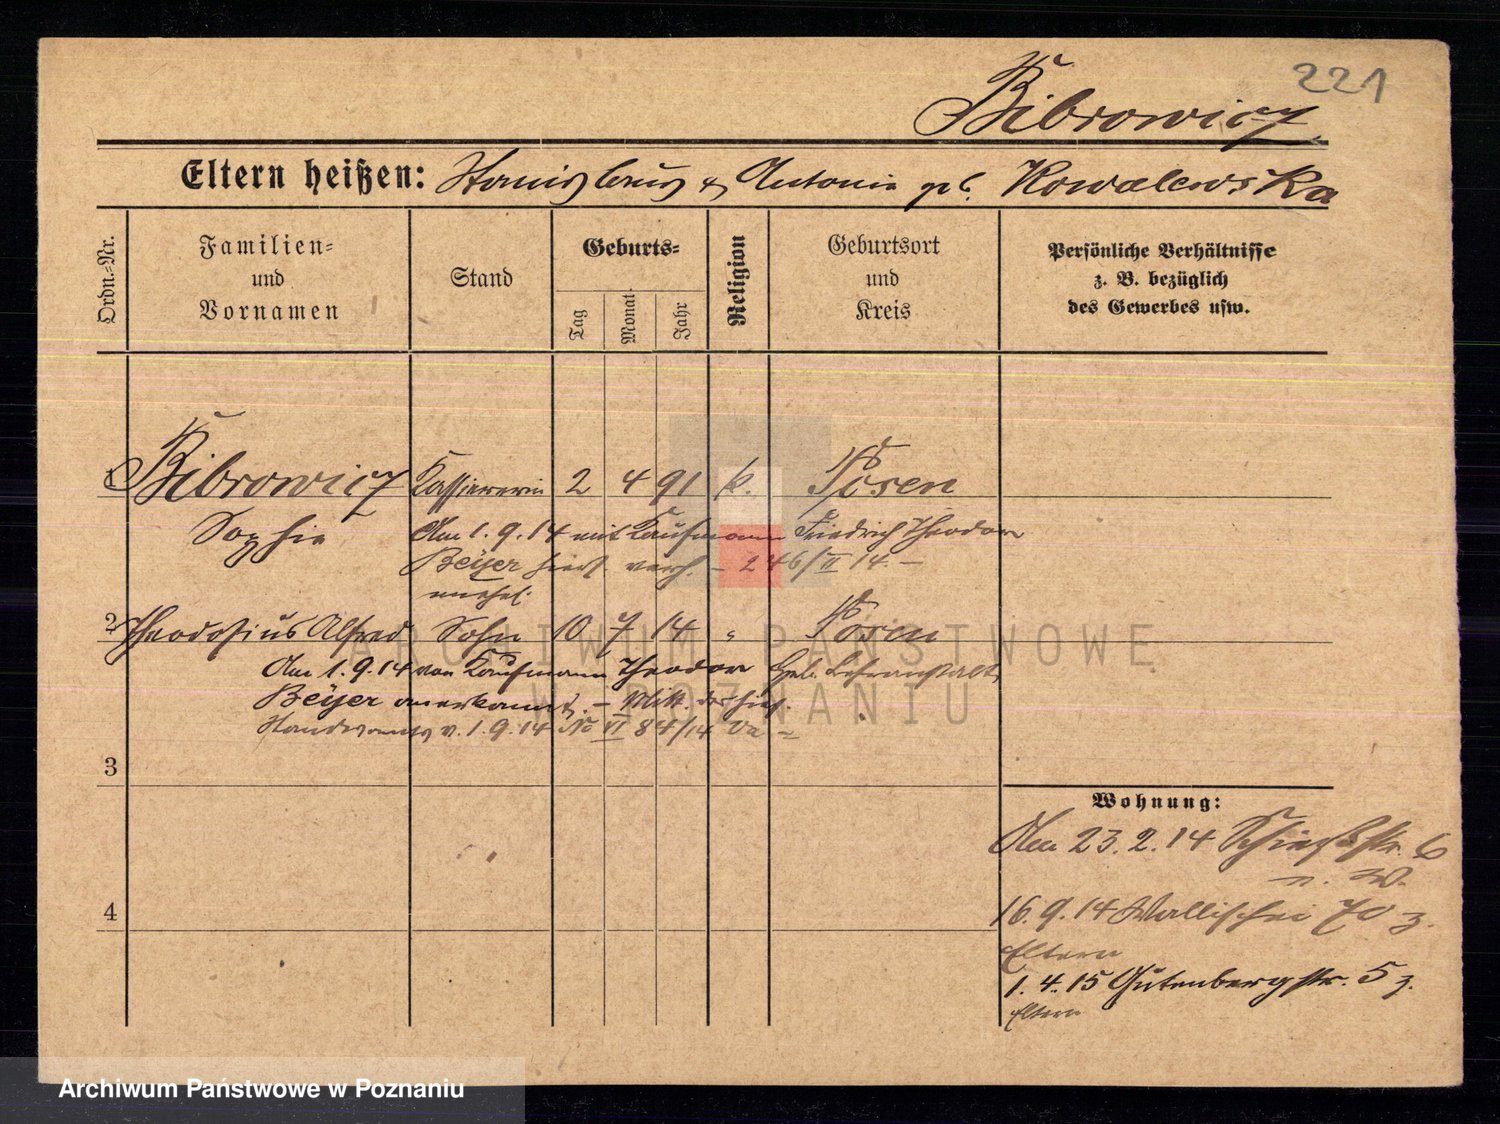 221
Bibrowicz
Eltern heißen: Stanislaus & Antonie geb. Kowalewska
Ordn.-Nr.
Familien-
und
Vornamen
Stand
Geburts-
Tag
Monat
Jahr
Religion
Geburtsort
und
Kreis
Persönliche Verhältnisse
z. B. bezüglich
des Gewerbes usw.
1 Bibrowicz Kassiererin 2 4 91 k. Posen
Sophie Am 1.9.14 mit Kaufmann Friedrich Theodor
Beÿer hier verh. – 246/II 14. –
unehel.
2 Theodosius Alfred Sohn 10 7 14 " Posen
Am 1.9.14 von Kaufmann Theodor Geb.
Beÿer anerkannt. – Mitt. des hies.
Standesamts v. 1.9.14 No VI 84/14
3
4
Wohnung:
Am 23.2.14 Schießstr. 6
n. W.
16.9.14 Wallischei 70 z.
Eltern
1.4.15 Gutenbergstr. 5 z.
Eltern
ARCHIWUM PAŃSTWOWE
W POZNANIU
Archiwum Państwowe w Poznaniu